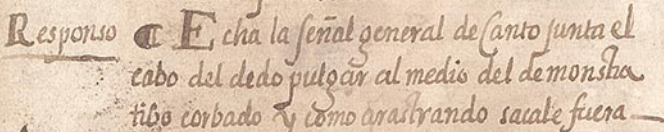 Responso ¶ Echa la señal general de Canto junta el
cabo del dedo pulgar al medio del demonstra
tibo corbado y como arastrando sacale fuera